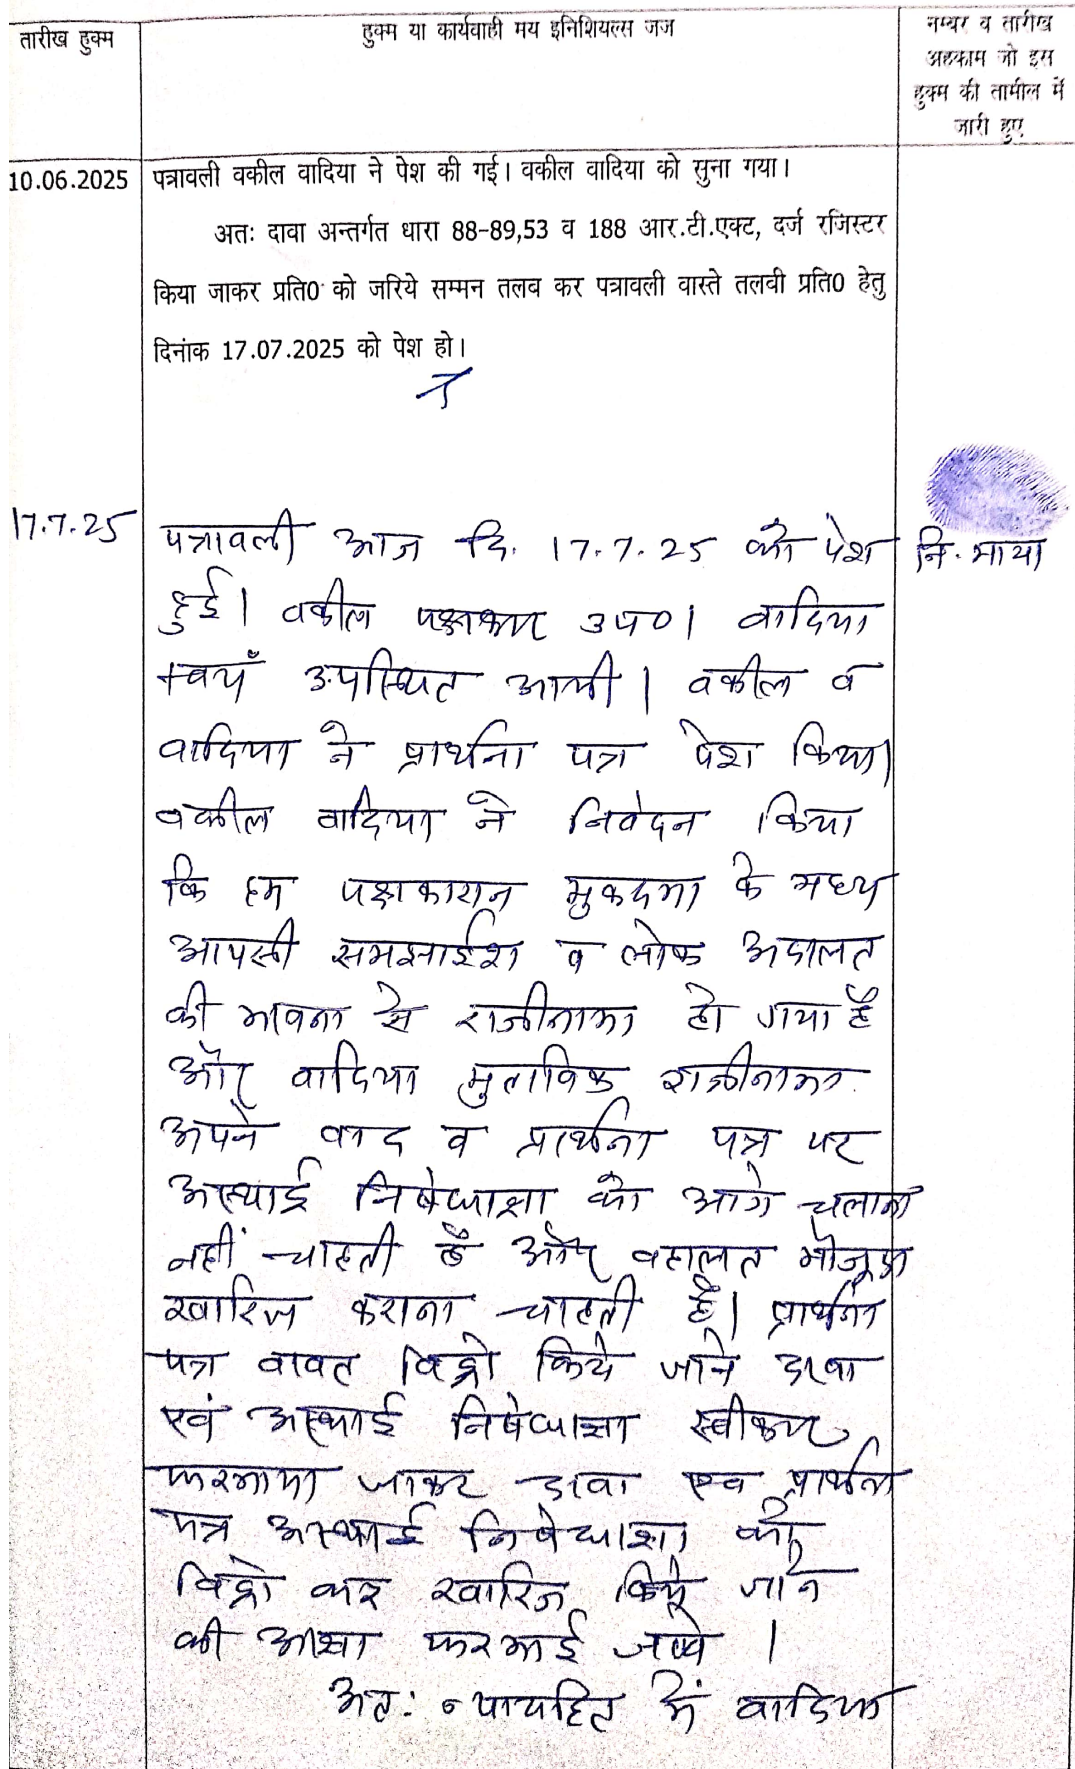 तारीख हुक्म
हुक्म या कार्यवाही मय इनिशियल्स जज
नम्बर व तारीख
अहकाम जो इस
हुक्म की तामील में
जारी हुए
10.06.2025
पत्रावली वकील वादिया ने पेश की गई। वकील वादिया को सुना गया।
अतः दावा अन्तर्गत धारा 88-89,53 व 188 आर.टी.एक्ट, दर्ज रजिस्टर
किया जाकर प्रति0 को जरिये सम्मन तलव कर पत्रावली वास्ते तलवी प्रति0 हेतु
दिनांक 17.07.2025 को पेश हो।
17.7.25
पत्रावली आज दि. 17.7.25 को पेश
नि. माया
हुई। वकील पक्षकार उप0। वादिया
स्वयँ उपस्थित आयी। वकील व
वादिया ने प्रार्थना पत्र पेश किया।
वकील वादिया ने निवेदन किया
कि हम पक्षकारान मुकदमा के मध्य
आपसी समझाईश व लोक अदालत
की भावना से राजीनामा हो गया है
और वादिया मुताविक राजीनामा
अपने वाद व प्रार्थना पत्र पर
अस्थाई निषेधाज्ञा को आगे चलाना
नहीं चाहती है और वहालत मौजूदा
खारिज कराना चाहती है। प्रार्थना
पत्र वावत विड्रो किये जाने दावा
एवं अस्थाई निषेधाज्ञा स्वीकार
फरमाया जाकर दावा एव प्रार्थना
पत्र अस्थाई निषेधाज्ञा को
विड्रो कर खारिज किये जाने
की आज्ञा फरमाई जावे।
अत: न्यायहित में वादिया